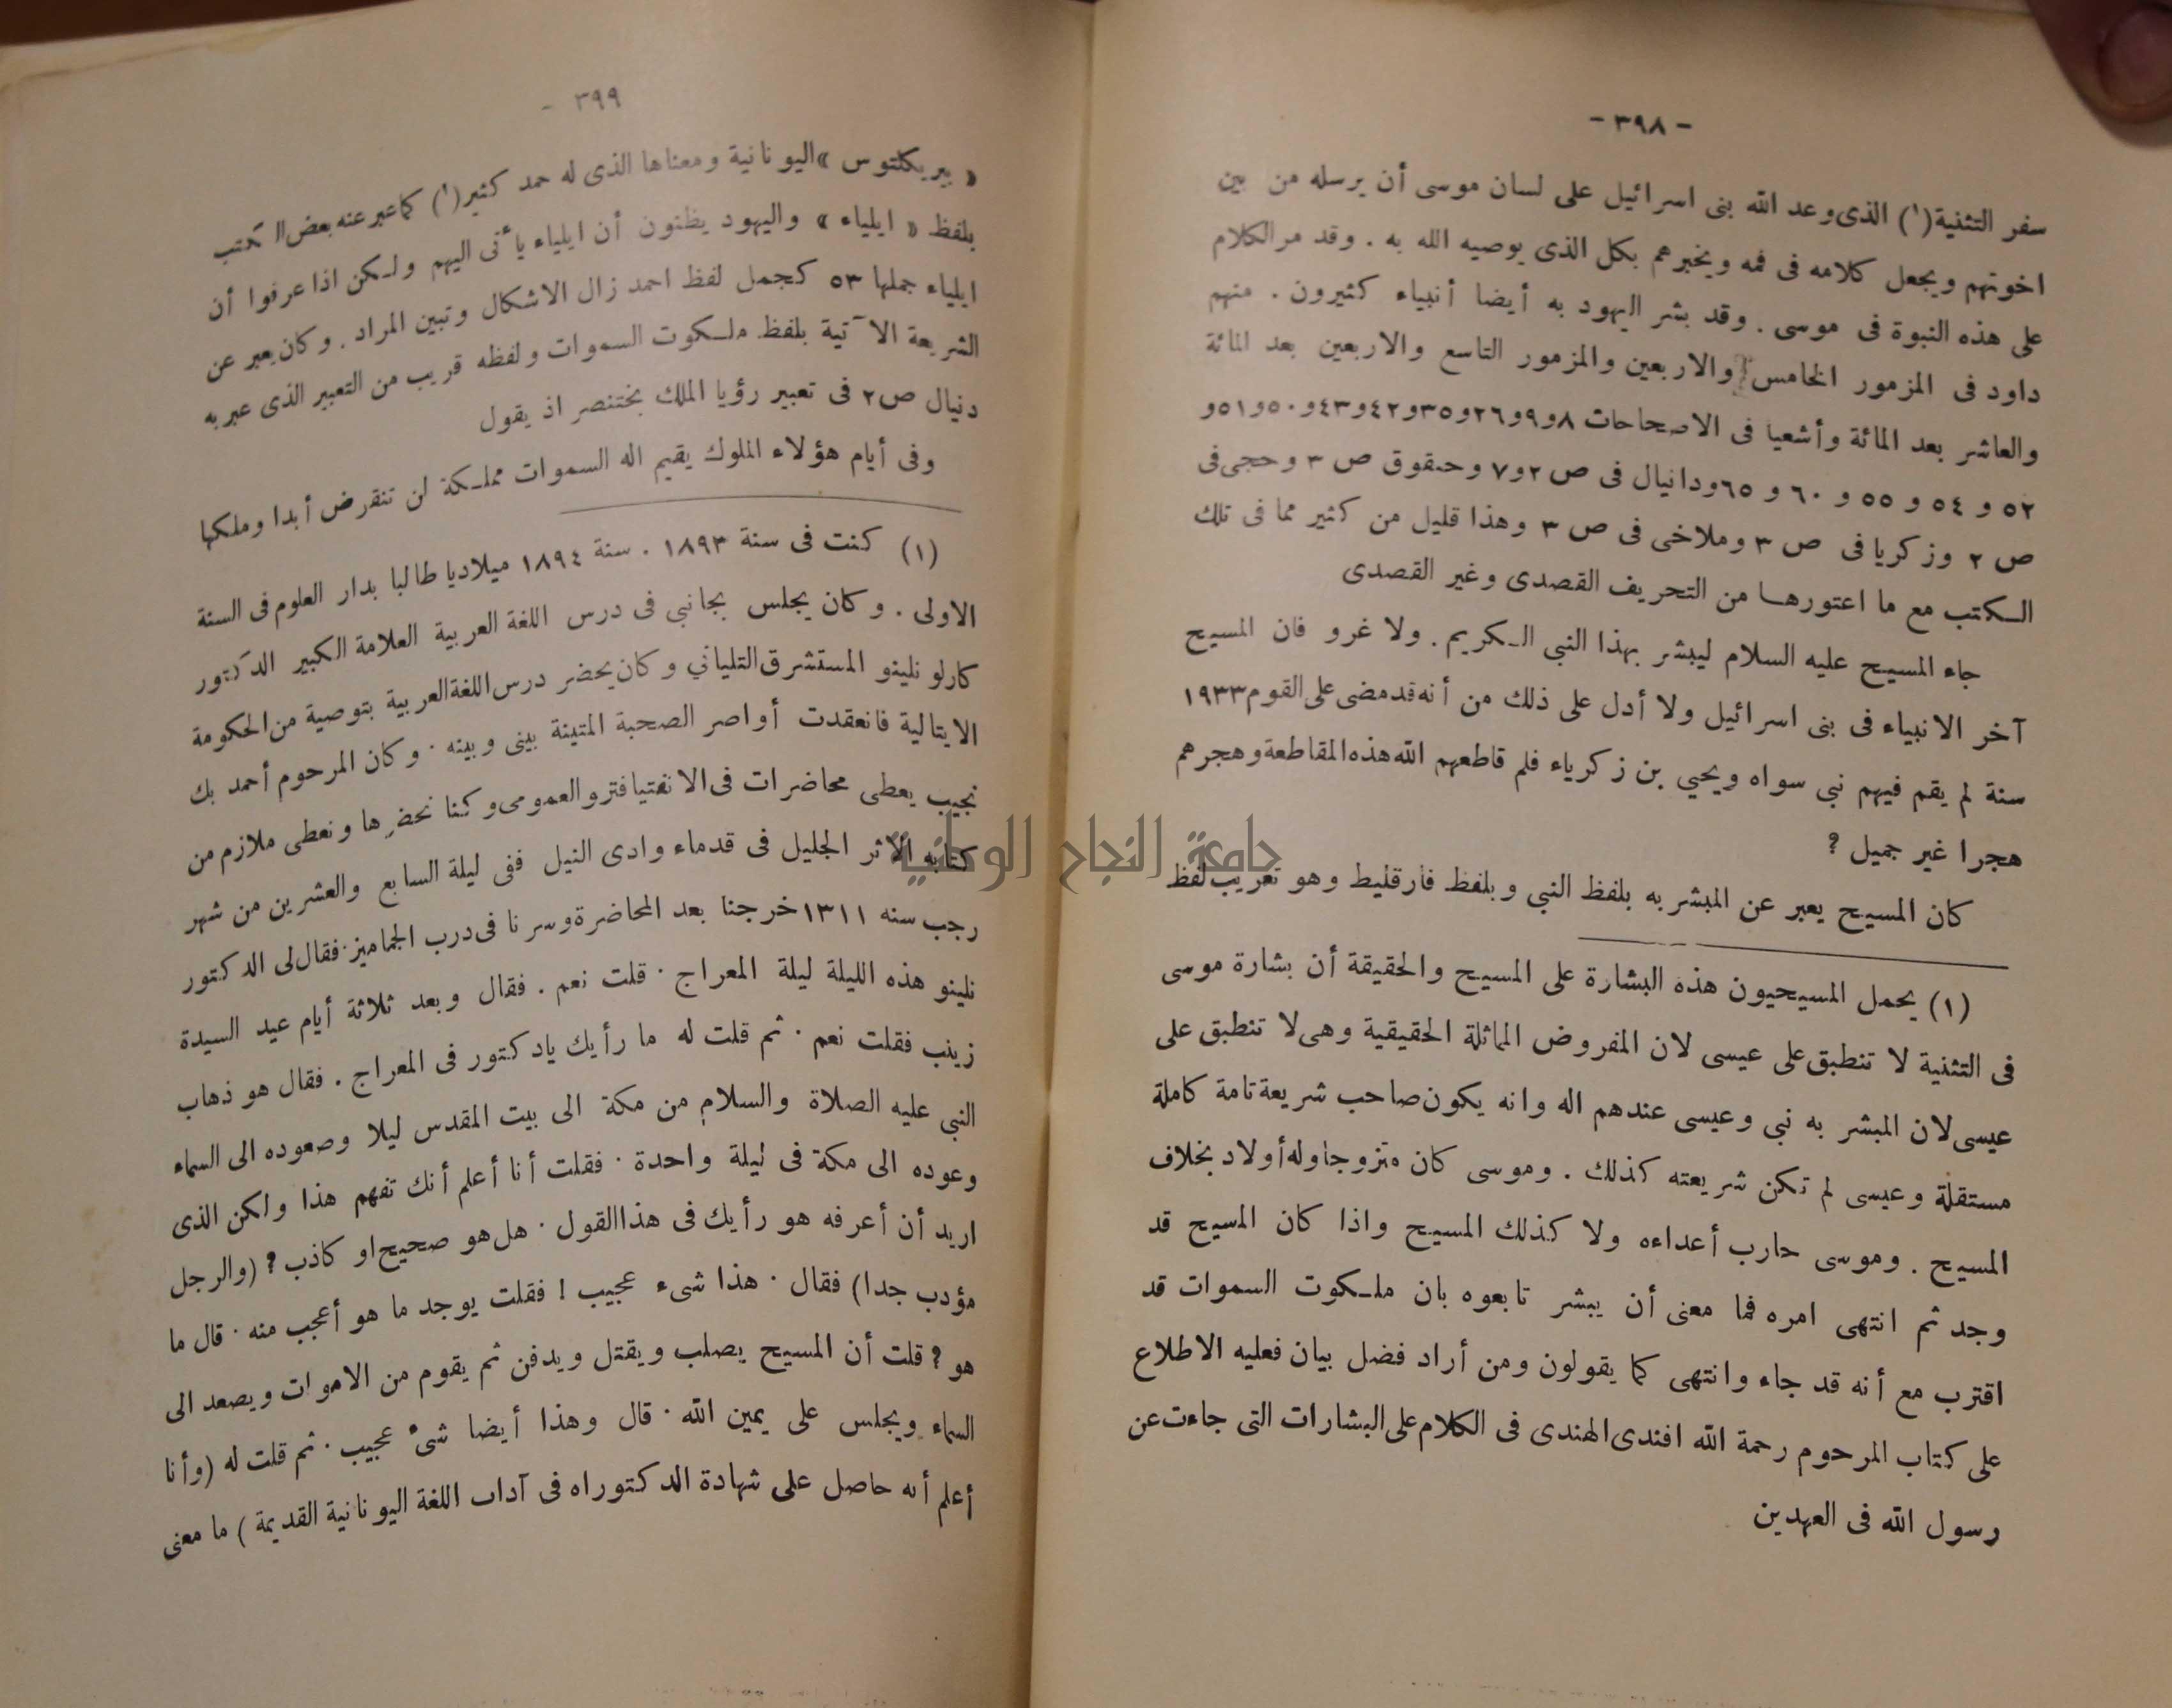 - ٣٩٨ -
سفر التثنية(١) الذى وعد الله بنى اسرائيل على لسان موسى أن يرسله من بين
اخوتهم ويجعل كلامه فى فمه ويخبرهم بكل الذى يوصيه الله به . وقد مر الكلام
على هذه النبوة فى موسى . وقد بشر اليهود به أيضا أنبياء كثيرون . منهم
داود فى المزمور الخامس والاربعين والمزمور التاسع والاربعين بعد المائة
والعاشر بعد المائة وأشعيا فى الاصحاحات ٨و٩و٢٦و٣٥و٤٢و٤٣و٥٠و٥١و
٥٢ و ٥٤ و ٥٥ و ٦٠ و ٦٥ ودانيال فى ص ٢و٧ وحبقوق ص ٣ وحجى فى
ص ٢ وزكريا فى ص ٣ وملاخى فى ص ٣ وهذا قليل من كثير مما فى تلك
الكتب مع ما اعتورها من التحريف القصدى وغير القصدى
جاء المسيح عليه السلام ليبشر بهذا النبى الكريم . ولا غرو فان المسيح
آخر الانبياء فى بنى اسرائيل ولا أدل على ذلك من أنه قد مضى على القوم ١٩٣٣
سنة لم يقم فيهم نبى سواه ويحيي بن زكرياء فلم قاطعهم الله هذه المقاطعة وهجرهم
هجرا غير جميل ?
كان المسيح يعبر عن المبشر به بلفظ النبى وبلفظ فارقليط وهو تعريب لفظ
(١) يحمل المسيحيون هذه البشارة على المسيح والحقيقة أن بشارة موسى
فى التثنية لا تنطبق على عيسى لان المفروض المماثلة الحقيقية وهى لا تنطبق على
عيسى لان المبشر به نبى وعيسى عندهم اله وانه يكون صاحب شريعة تامة كاملة
مستقلة وعيسى لم تكن شريعته كذلك . وموسى كان متزوجا وله أولاد بخلاف
المسيح . وموسى حارب أعداءه ولا كذلك المسيح واذا كان المسيح قد
وجد ثم انتهى امره فما معنى أن يبشر تابعوه بان ملكوت السموات قد
اقترب مع أنه قد جاء وانتهى كما يقولون ومن أراد فضل بيان فعليه الاطلاع
على كتاب المرحوم رحمة الله افندى الهندى فى الكلام على البشارات التى جاءت عن
رسول الله فى العهدين
٣٩٩ -
« بيريكلتوس » اليونانية ومعناها الذى له حمد كثير(١) كما عبر عنه بعض الكتب
بلفظ « ايلياء » واليهود يظنون أن ايلياء يأتى اليهم ولكن اذا عرفوا أن
ايلياء جملها ٥٣ كجمل لفظ احمد زال الاشكال وتبين المراد . وكان يعبر عن
الشريعة الآتية بلفظ ملكوت السموات ولفظه قريب من التعبير الذى عبر به
دنيال ص٢ فى تعبير رؤيا الملك بختنصر اذ يقول
وفى أيام هؤلاء الملوك يقيم اله السموات مملكة لن تنقرض أبدا وملكها
(١) كنت فى سنة ١٨٩٣ . سنة ١٨٩٤ ميلاديا طالبا بدار العلوم فى السنة
الاولى . وكان يجلس بجانبى فى درس اللغة العربية العلامة الكبير الدكتور
كارلو نلينو المستشرق التليانى وكان يحضر درس اللغة العربية بتوصية من الحكومة
الايتالية فانعقدت أواصر الصحبة المتينة بينى وبينه . وكان المرحوم أحمد بك
نجيب يعطى محاضرات فى الانفتيافترو العمومى وكنا نحضرها ونعطى ملازم من
كتابه الأثر الجليل فى قدماء وادى النيل ففى ليلة السابع والعشرين من شهر
رجب سنه ١٣١١ خرجنا بعد المحاضرة وسرنا فى درب الجماميز . فقال لى الدكتور
نلينو هذه الليلة ليلة المعراج . قلت نعم . فقال وبعد ثلاثة أيام عيد السيدة
زينب فقلت نعم . ثم قلت له ما رأيك يادكتور فى المعراج . فقال هو ذهاب
النبى عليه الصلاة والسلام من مكة الى بيت المقدس ليلا وصعوده الى السماء
وعوده الى مكة فى ليلة واحدة . فقلت أنا أعلم أنك تفهم هذا ولكن الذى
اريد أن أعرفه هو رأيك فى هذا القول . هل هو صحيح او كاذب ? (والرجل
مؤدب جدا) فقال . هذا شىء عجيب ! فقلت يوجد ما هو أعجب منه . قال ما
هو ? قلت أن المسيح يصلب ويقتل ويدفن ثم يقوم من الاموات ويصعد الى
السماء ويجلس على يمين الله . قال وهذا أيضا شىء عجيب . ثم قلت له (وأنا
أعلم أنه حاصل على شهادة الدكتوراه فى آداب اللغة اليونانية القديمة ) ما معنى
جامعة النجاح الوطنية